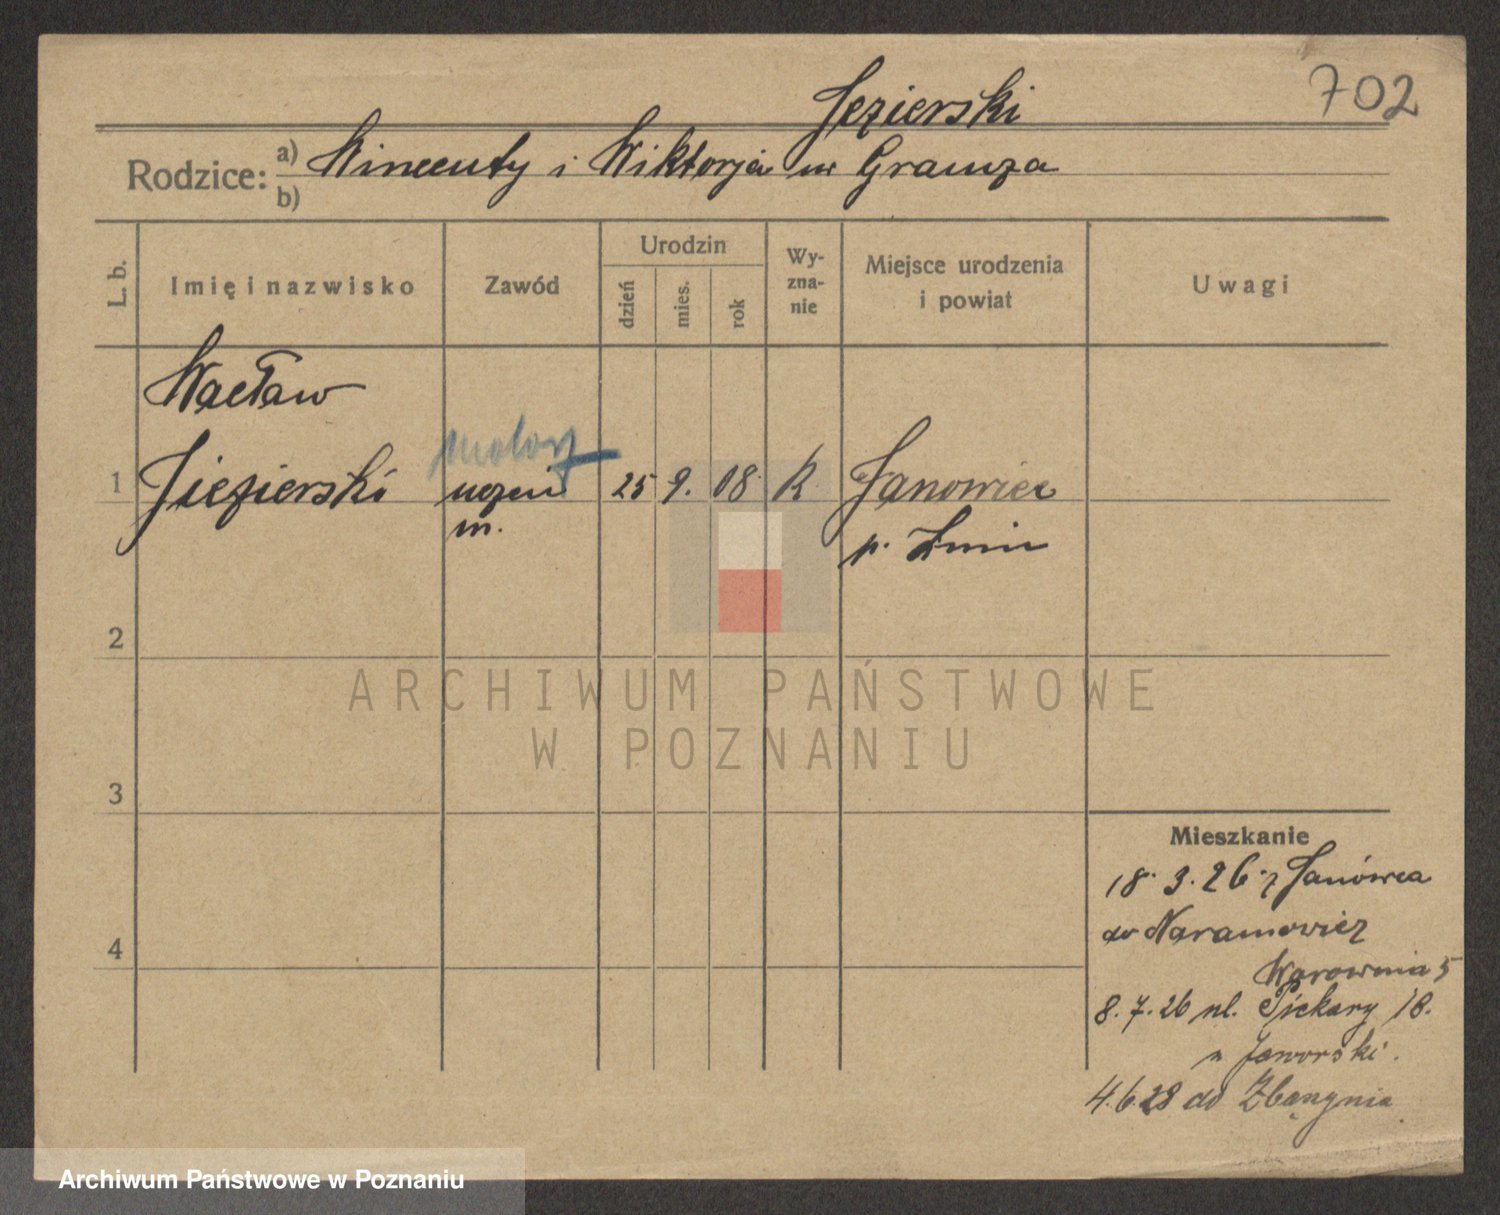 702
Jezierski
Rodzice: a) Wincenty i Wiktorja ur Gramza
b)
L. b.
Imię i nazwisko
Zawód
Urodzin
dzień
mies.
rok
Wy-
zna-
nie
Miejsce urodzenia
i powiat
Uwagi
Wacław
1 Jiezierski
uczeń
m.
25 9. 08. K
Janowiec
p. Żnin
2
3
4
ARCHIWUM PAŃSTWOWE
W POZNANIU
Mieszkanie
18. 3. 26 z Janówca
do Naramowic
5
8. 7. 26 ul. Piekary 18.
u Jaworski.
4.6.28 do Zbąszynia
Archiwum Państwowe w Poznaniu